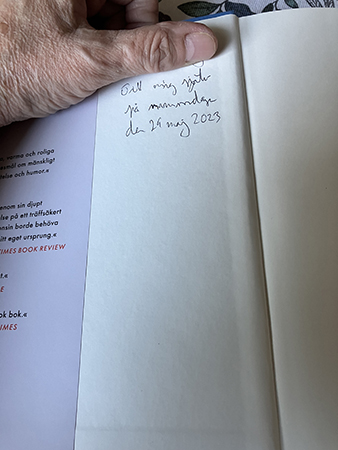 Till mig själv
på
den 29 maj 2023
, varme och roliga
esmål om mänskligt
else och humor.«
enom sin djupt
else på ett träffsäkert
onsin borde behöva
itt eget ursprung.«
TIMES BOOK REVIEW
t.«
E
ok bok.«
IMES